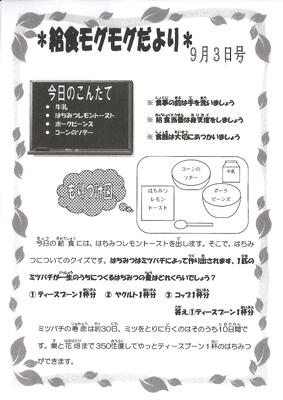 *給食モグモグだより*
9月3日号
今日のこんだて
● 牛乳
● はちみつレモントースト
● ポークビーンズ
● コーンのソテー
※ 食事の前は手を洗いましょう
※ 給食当番は身支度をしましょう
※ 食器は大切にあつかいましょう
コーンの
ソテー
牛乳
はちみつ
レモン
トースト
ポーク
ビーンズ
もりつけ図
今日の給食には、はちみつレモントーストを出します。そこで、はちみ
つについてのクイズです。はちみつはミツバチによって作り出されます。1匹の
ミツバチが一生のうちにつくるはちみつの量はどれくらいでしょう?
① ティースプーン1杯分 ② ヤクルト1杯分 ③ コップ1杯分
答え①ティースプーン1杯分
ミツバチの寿命は約30日。ミツをとりに行くのはそのうち10日間で
す。巣と花畑まで350往復してやっとティースプーン1杯のはちみつ
ができます。